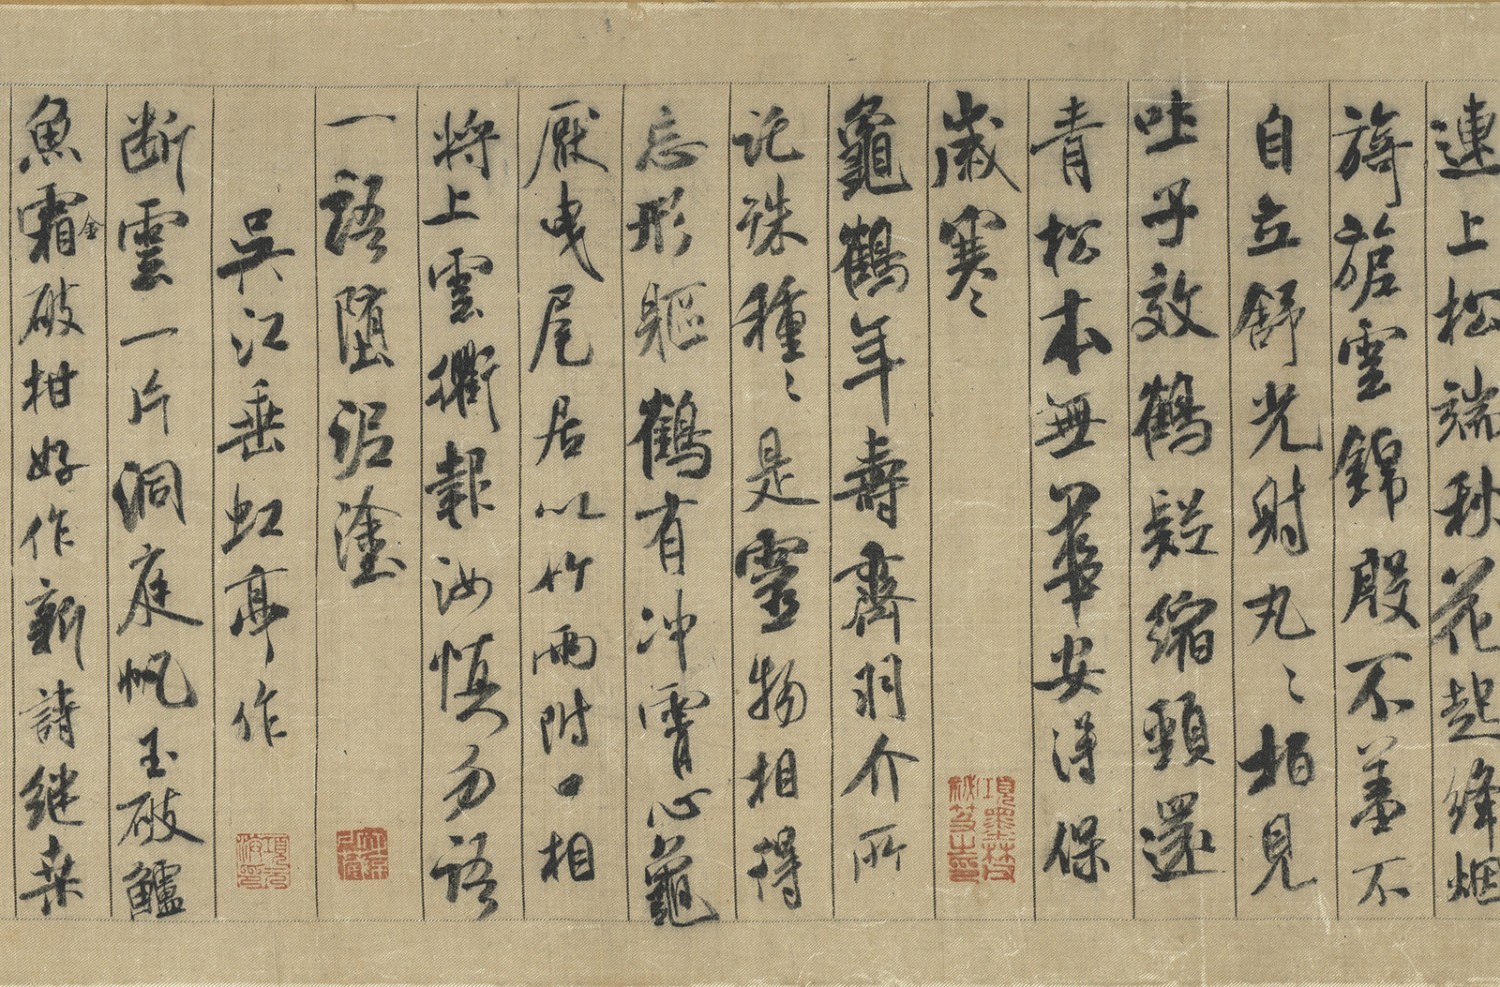 連上松端秋花起絳烟
旖旎雲錦殷不羞不
自立舒光射丸〻栢見
吐子效鶴疑縮頸還
青松本無華安得保
歲寒〻
龜鶴年壽齊羽介所
託殊種〻是靈物相得
忘形軀鶴有冲霄心龜
厭曳尾居以竹兩附口相
將上雲衢報汝慎勿語
一語墮泥塗
吳江垂虹亭作
断雲一片洞庭帆玉破鱸
魚霜金破柑好作新詩继桒